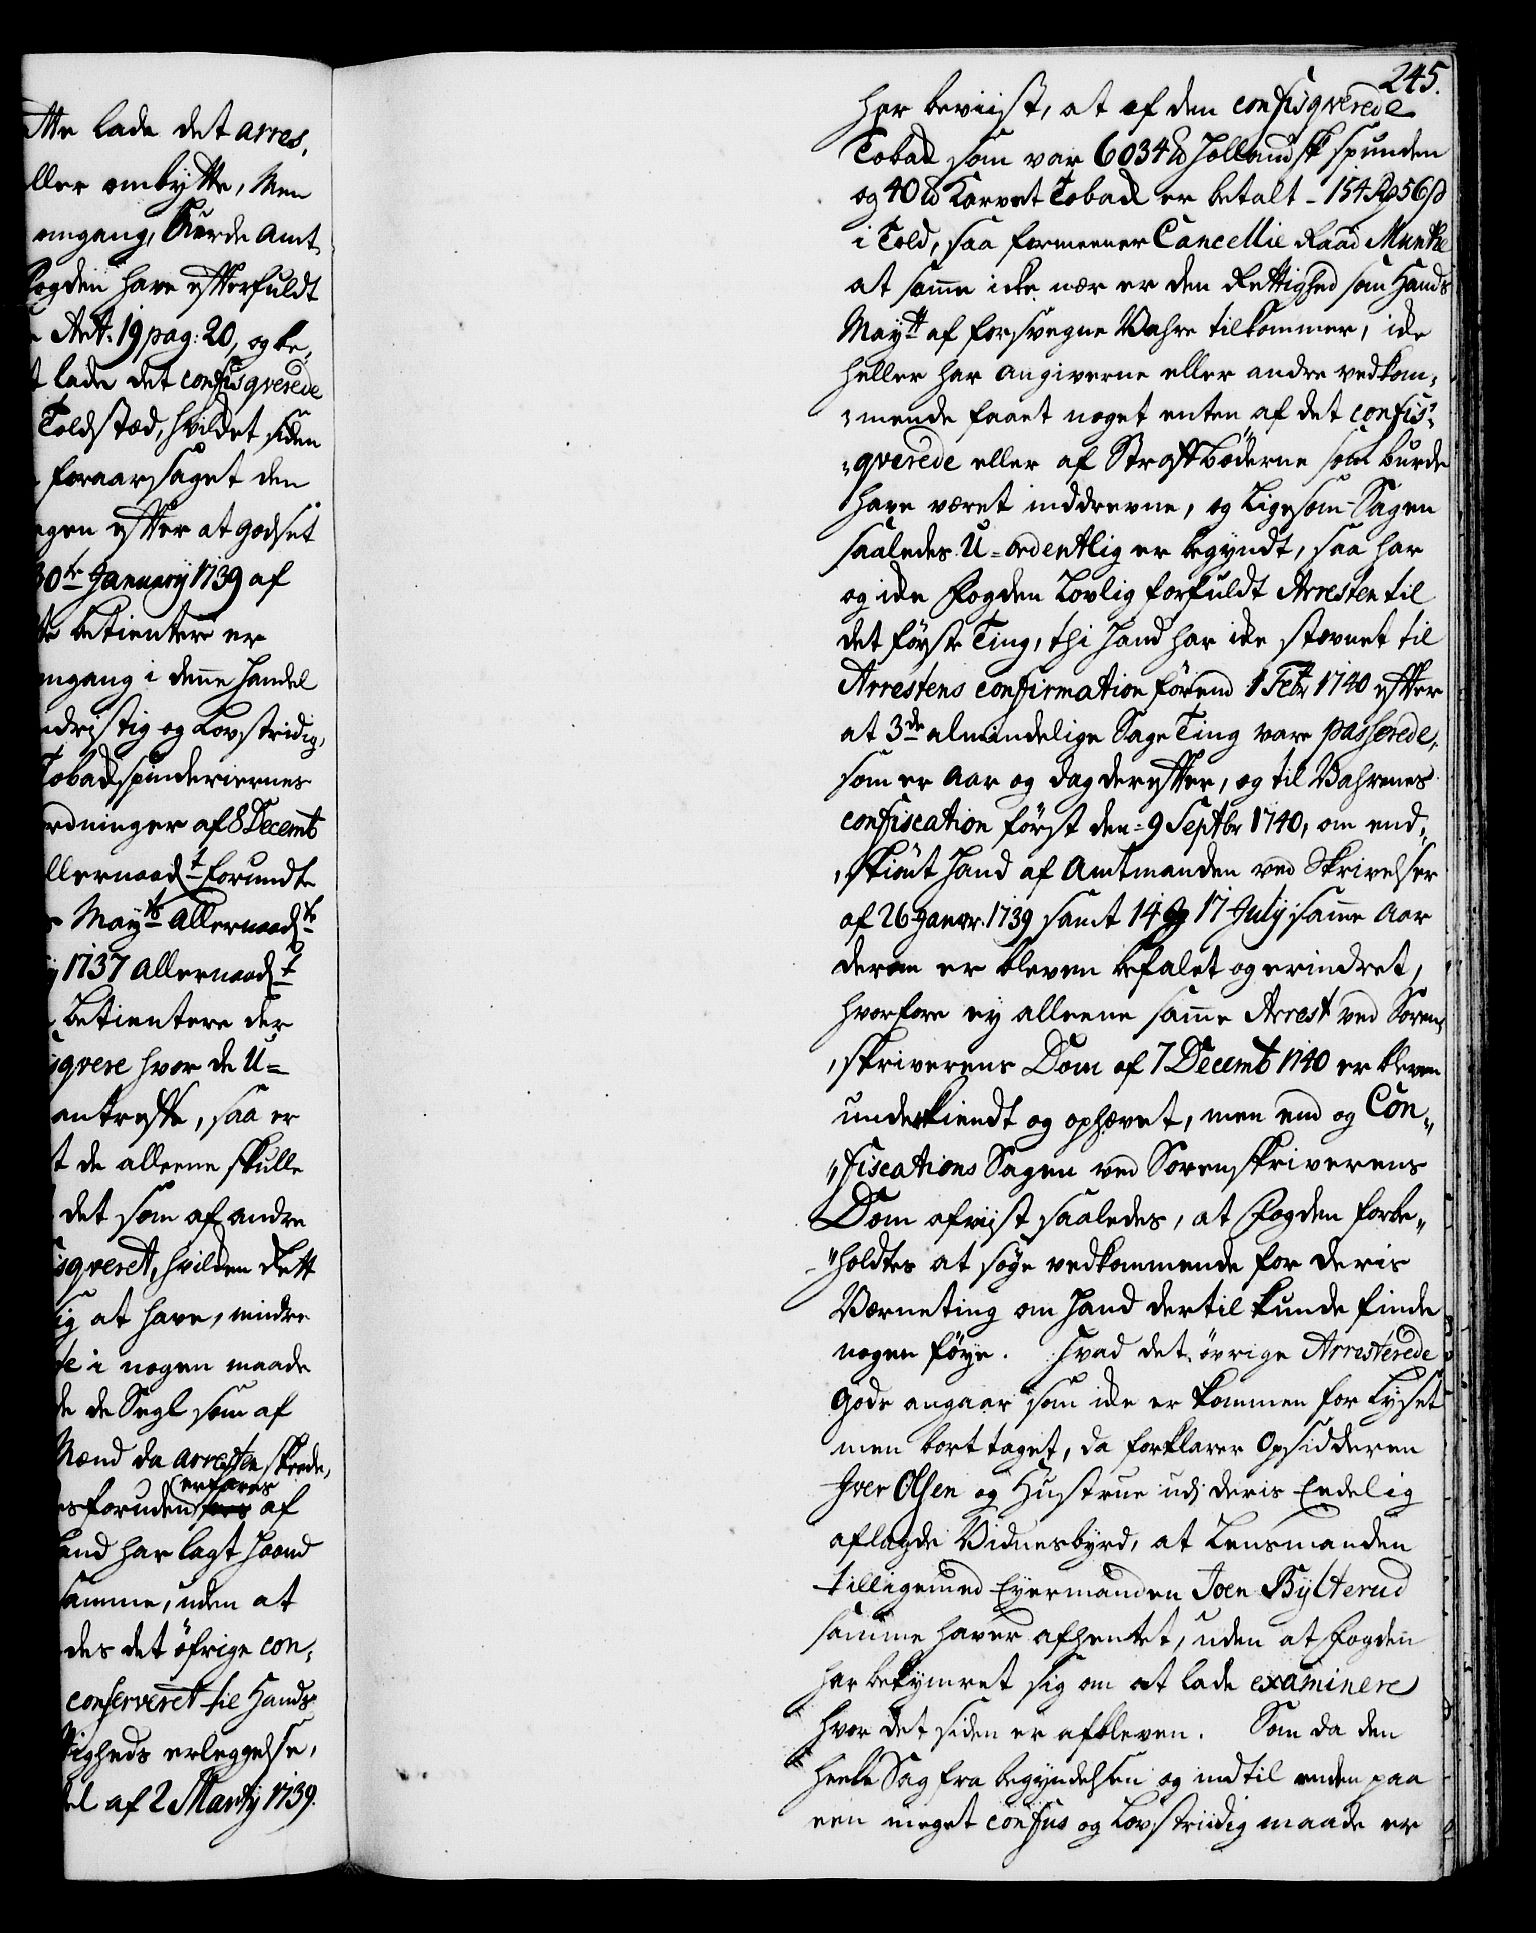 tte lade det arres,
ller ombytte, Men
omgang, Burde Amt,
Fogden have efterfuldt
Art: 19 pag: 20, og be,
t lade det confisqverede
Toldstæd, hvilket siden
foraarsaget den
agen efter at godset
30te January 1739 af
betientere er
omgang i denne Handel
dristig og Lovstridig,
Tobakspinderiernes
rdninger af 8 Decemb
llernaadt forundte
Mayts Allernaadte
1737 allernaadt
Betientere der
isqvere hvor de U=
antreffe, saa er
t de alleene skulle
det som af andre
isqveret, hvilken Rett
ig at have, mindre
te i nogen maade
de de Segl som af
Mænd da arresten skeede,
erfares
esforuden af
and har lagt Haand
samme, uden at
des det öfrige con,
conserveret til Hands
tigheds erleggelse,
el af 2 Martij 1739.
245.
har beviist, at af den confisqverede
Tobak som var 6034 lb Hollandsk spunden
og 40 lb Karvet Tobak er betalt - 154 Rd 56 s
i Told, saa formeener Cancellie Raad Munthe
at samme icke nær er den Rettighed som Hands
Maytt af forsvegne Vahre tilkommer, icke
heller har Angiverne eller andre vedkom,
,mende faaet noget enten af det confis,
,qverede eller af Straffböderne som burde
have været inddrevne, og Ligesom Sagen
saaledes U=ordentlig er begyndt, saa har
og icke Fogden Lovlig forfuldt Arresten til
det föyste Ting, thi Hand har icke stævnet til
Arrestens confirmation förend 1 Febr 1740 efter
at 3de almindelige Sage Ting vare passerede,
som er Aar og dag derefter, og til Vahrenes
confiscation först den 9 Septbr 1740, om end,
,skiönt Hand af Amtmanden ved Skrivelser
af 26 Janvr. 1739 samt 14 og 17 July samme Aar
derom er bleven befalet og erindret,
hvorfore ey alleene samme Arrest ved Soren,
,skriverens Dom af 7 Decemb 1740 er bleven
underkiendt og ophævet, men end og Con,,
,,fiscations Sagen ved Sorenskriverens
Dom afviist saaledes, at Fogden forbe,,
,,holdtes at söge vedkommende for deris
Værneting om Hand dertil kunde finde
nogen föye. Hvad det övrige Arresterede
Gods angaar som icke er kommen for Lyset
men bort taget, da forklarer Opsidderen
Iver Olsen og Hustrue udi deris Eedelig
aflagde Vidnesbyrd, at Lensmanden
tilligemed Eyermanden Joen Bylterud
samme haver afhentet, uden at Fogden
har bekymret sig om at lade examinere
hvor det siden er afbleven. Som da den
heele Sag fra begyndelsen og indtil enden paa
een meget confus og Lovstriidig maade er